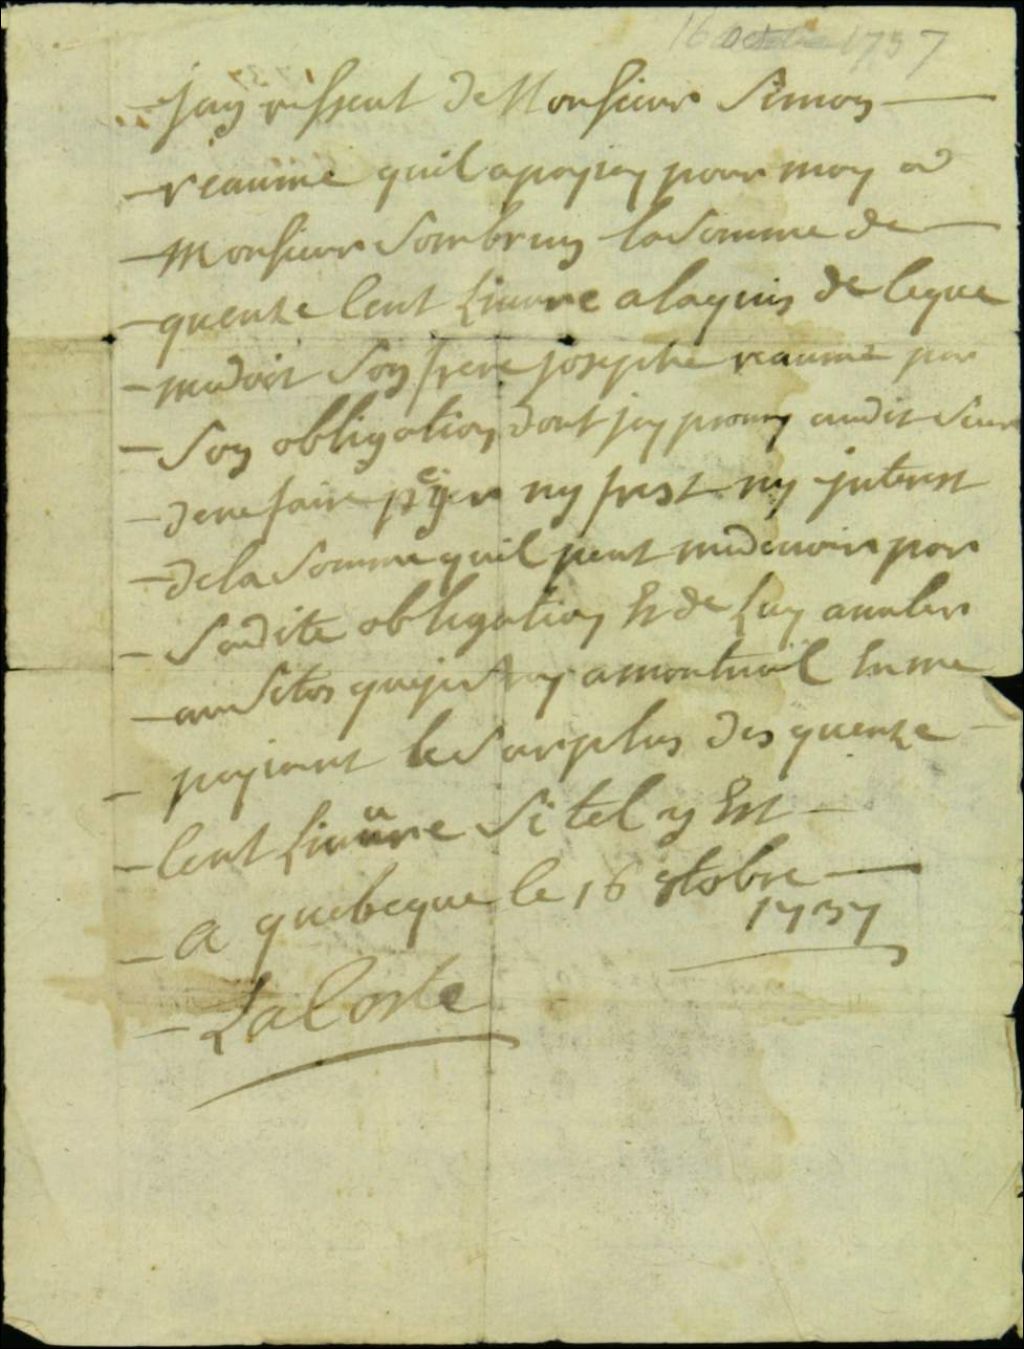 16 octobre 1737
jay resseut de Monsieur Simon
reaume quil a payey pour moy a
Monsieur Sombrun la Somme de
quenze Cent Liuvre a laquis de ce que
me doit Son frere josephe reaume par
Son obligation dont jey promy audit Sieur
de ne faire peyer ny frest ny jnterest
de la Somme quil peut me devoir par
Sadite obligation Et de Luy
ausitos que je a montreal En me
payient le Surplus des quenze
Cent Liuvre Si tel y Est
a quebeque le 16 octobre
1737
LaCoste